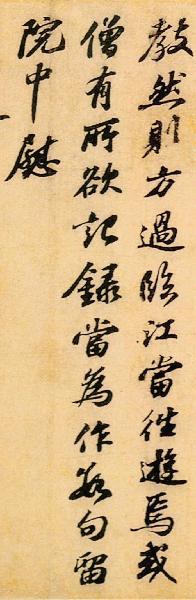 教然某方過臨江當往遊焉或
僧有所欲記錄當為作數句留
院中慰